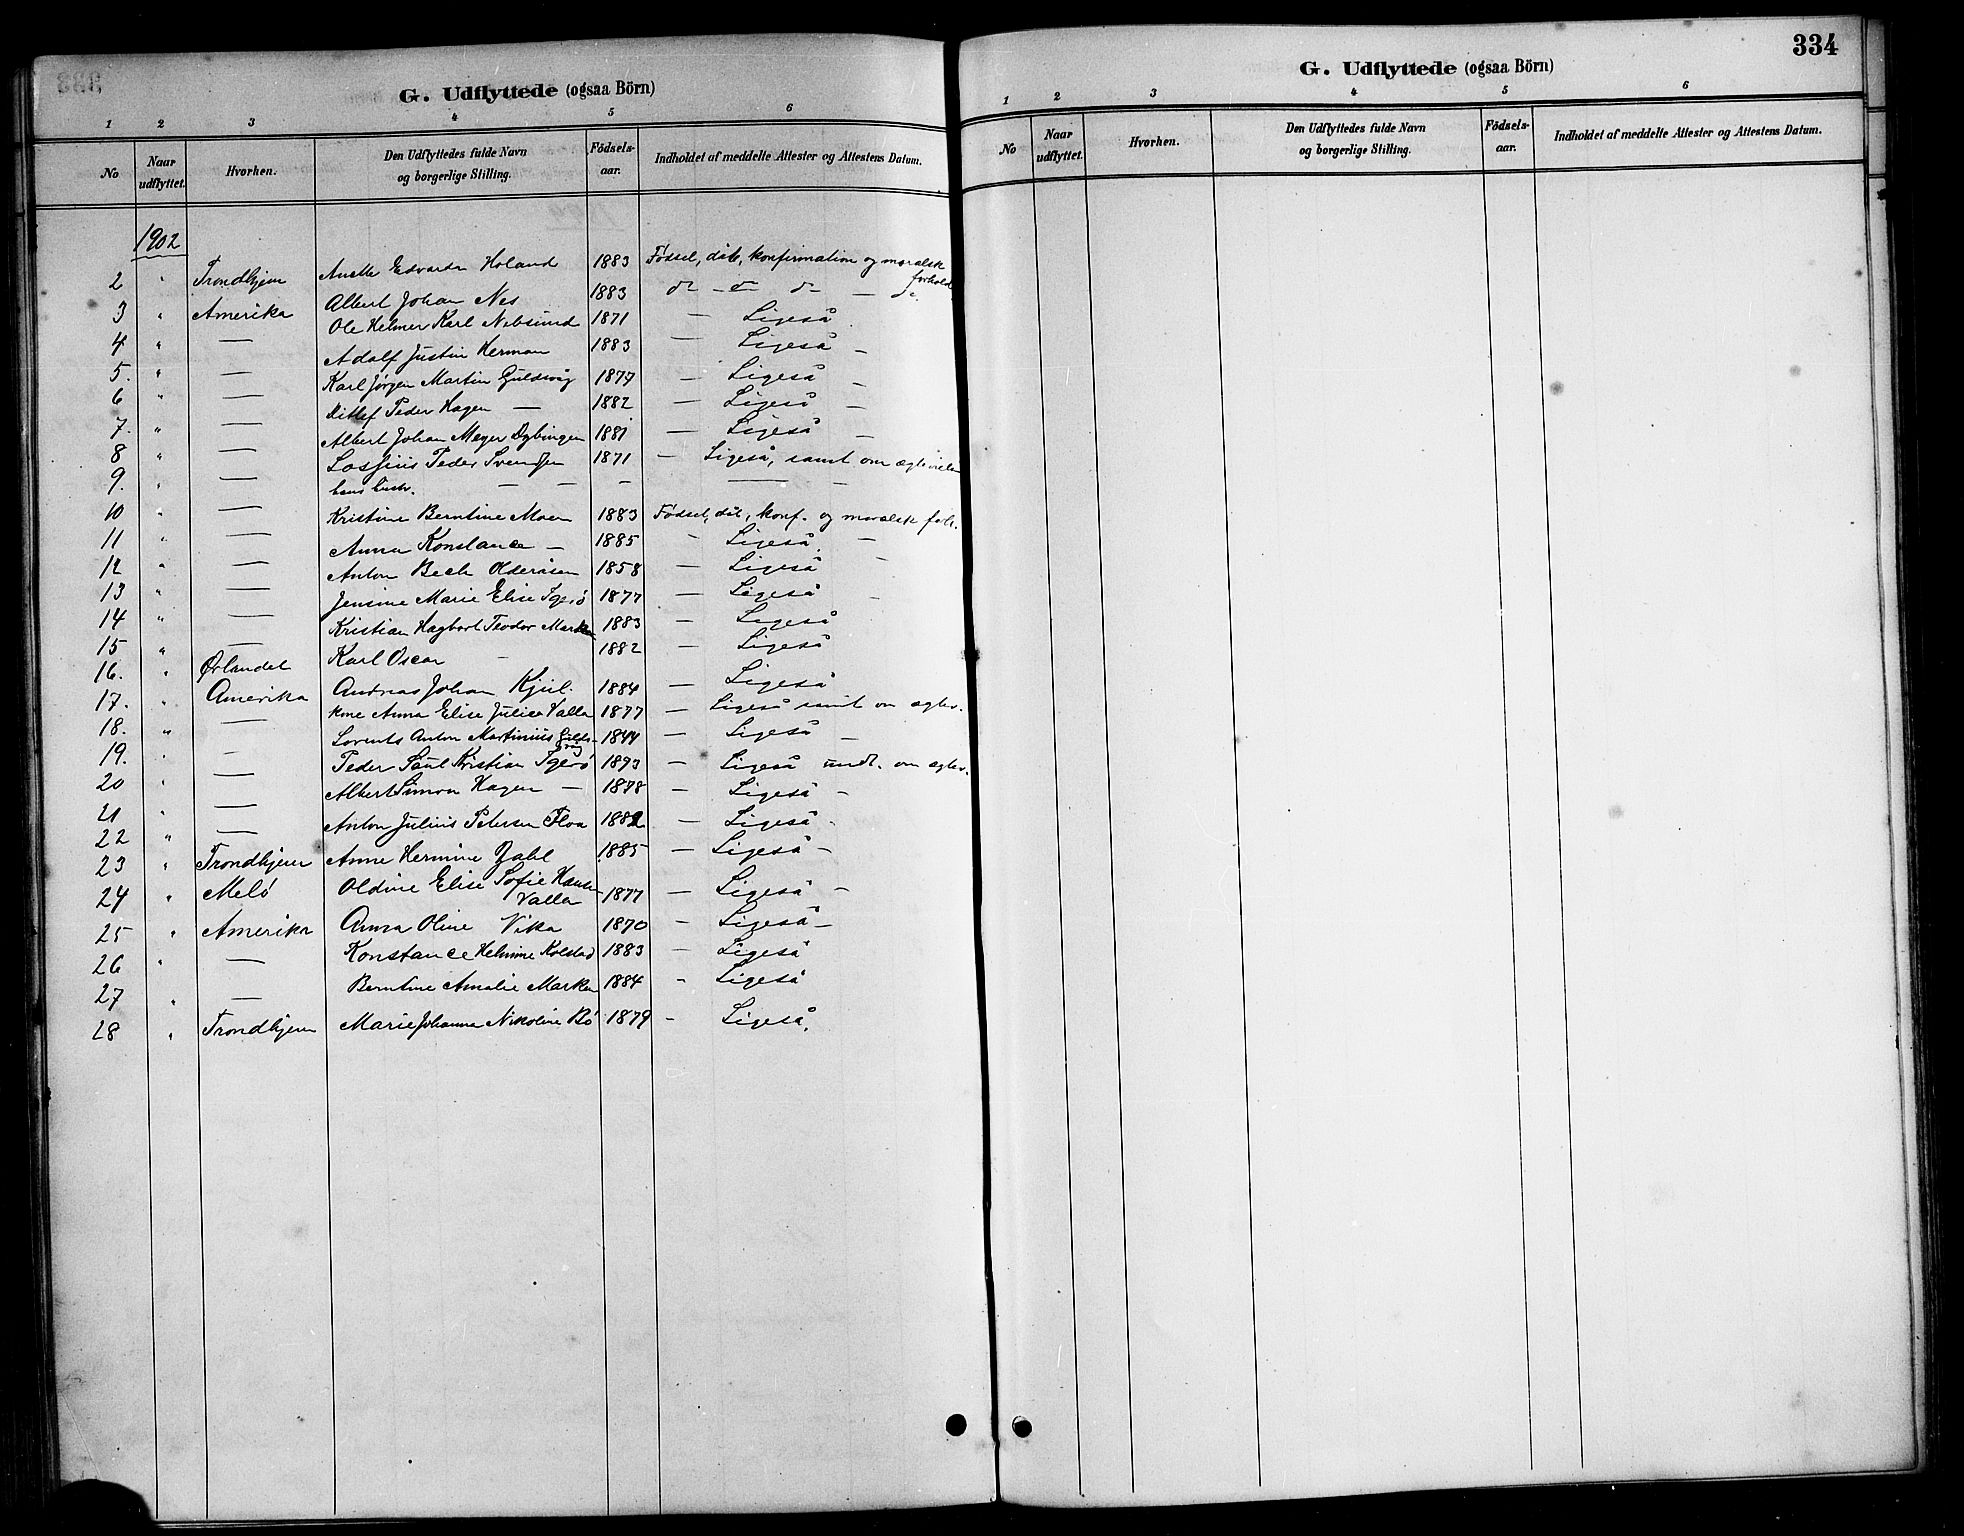 G. Udflyttede (ogsaa Börn)
1 2 3 4 5 6
No Naar udflyttet. Hvorhen. Den Udflyttedes fulde Navn og borgerlige Stilling. Fødselsaar. Indholdet af meddelte Attester og Attestens Datum.
1902
2 " Trondhjem Anette Edvarda Holand 1883 Fødsel, dåb, konfirmation og moralsk forhold
3 " Amerika Albert Johan Nes 1883 do - do do - do.
4 " — Ole Helmer Karl Nebsund 1871 — Ligeså
5. " — Adolf Justin Herman 1883 — Ligeså —
6 " — Karl Jørgen Martin Guldvåg 1877 — Ligeså —
7. " — Ditlef Peder Hagen — 1882 — Ligeså —
8 " — Albert Johan Meyer Dybingen 1881 — Ligeså —
9. " — Peder Svendsen 1871 — Ligeså, samt om
10 " — hans hustr. — — — —
11 " — Kristine Berntine Moen 1883 Fødsel, dåb, konf. og moralsk forh.
12 " — Anna Konstance — 1885 - Ligeså —
13 " — Anton Bech Olderåsen 1858 — Ligeså —
14 " — Jensine Marie Elise Tgerø 1877 — Ligeså —
15 " — Kristian Hagbart Teodor Marken 1883 — Ligeså
16. " Ørlandet Karl Oscar — 1882 — Ligeså
17. " Amerika Andreas Johan Kjul. 1884 — Ligeså
18. " — kone Anna Elise Julise Valla 1877 — Ligeså samt om ægtev.
19. " — Lorents Anton Martinius Guldvåg 1844 — Ligeså —
20 " — Peder Paul Kristian Tgerø 1893 — Ligeså undt. om ægtev.
21 " — Albert Simon Hagen — 1878 — Ligeså -
22 " — Anton Julius Petersen Floa 1882 — Ligeså -
23 " Trondhjem Anne Hermine Dahl 1885 — Ligeså -
24 " Melø Oldine Elise Sofie Hansen Valla 1877 — Ligeså -
25 " Amerika Anna Oline Vika 1870 — Ligeså -
26 " — Konstance Helmine Kolstad 1883 — Ligeså
27 " — Berntine Amalie Marken 1884 - Ligeså
28 " Trondhjem Marie Johanna Nikoline Bø 1879 - Ligeså.
334
G. Udflyttede (ogsaa Börn)
1 2 3 4 5 6
No Naar udflyttet. Hvorhen. Den Udflyttedes fulde Navn og borgerlige Stilling. Fødselsaar. Indholdet af meddelte Attester og Attestens Datum.